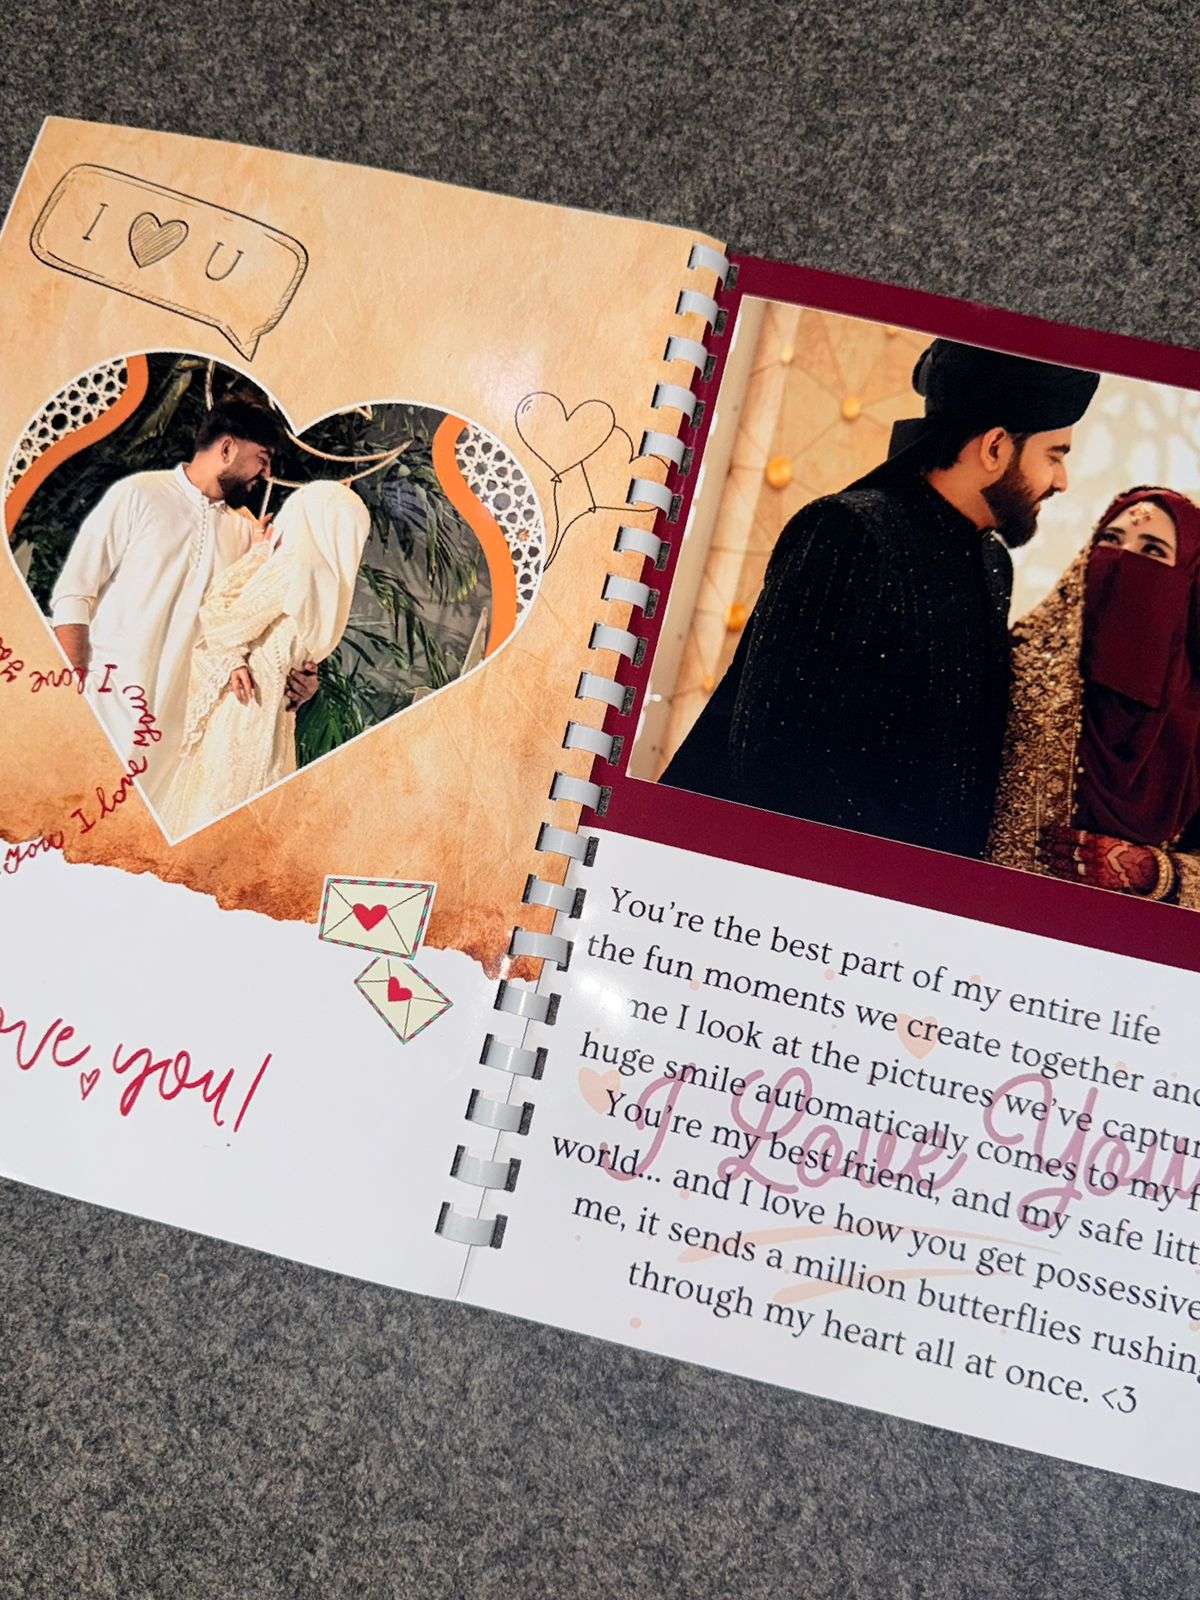 I U
I love you
you I love you
ove you!
You're the best part of my entire life
the fun moments we create together and
me I look at the pictures we've captur
huge smile automatically comes to my f
You're my best friend, and my safe litt
world... and I love how you get possessive
me, it sends a million butterflies rushing
through my heart all at once. <3
I Love You